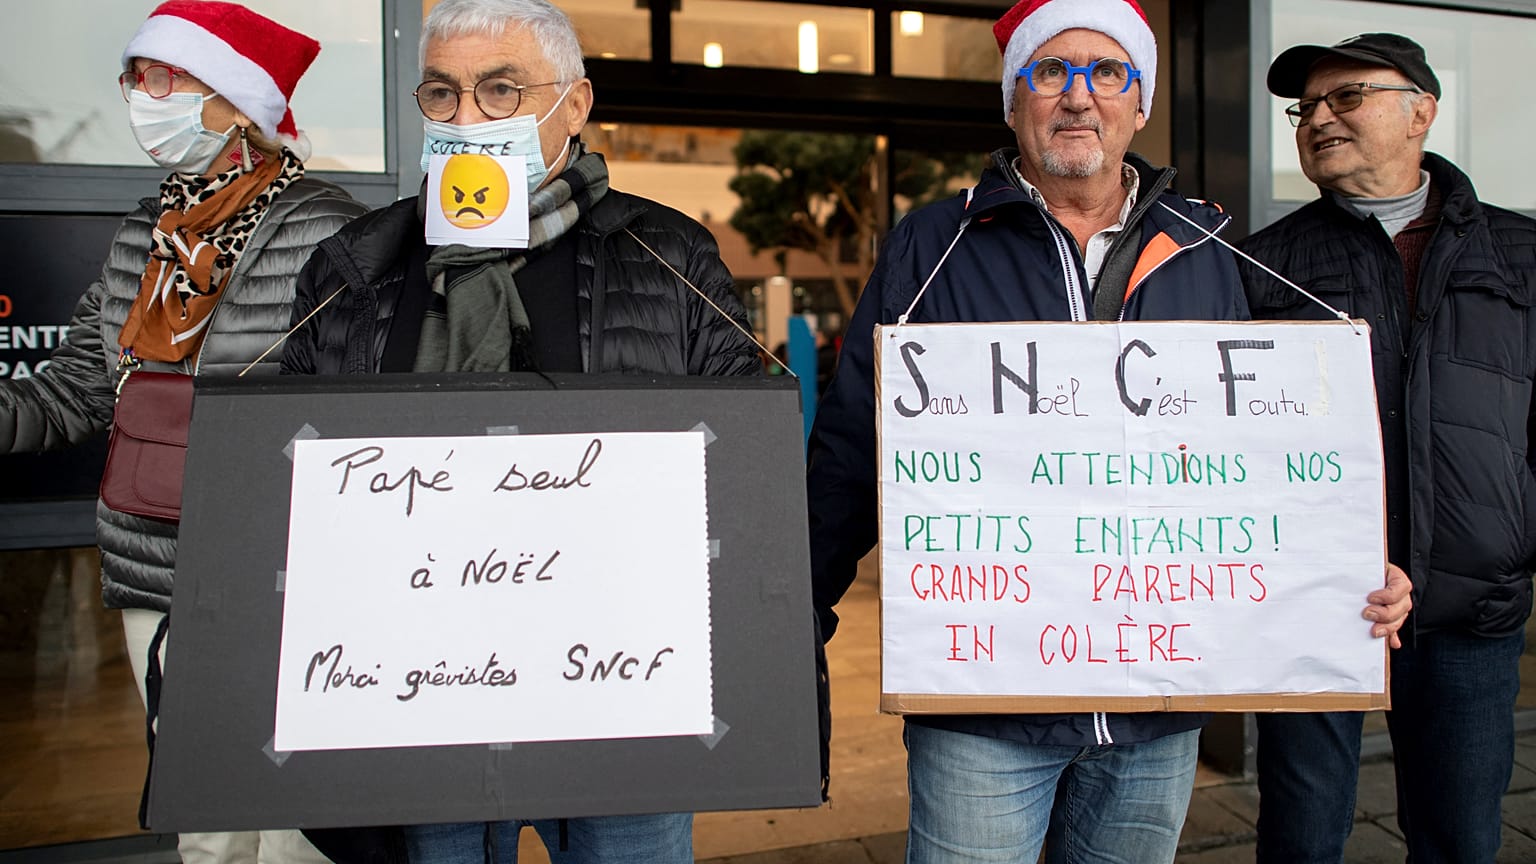 COLERE
Papé seul
à NOËL
Merci grêvistes SNCF
Sans Noël C'est Foutu.
NOUS ATTENDiONS NOS
PETITS ENFANTS !
GRANDS PARENTS
EN COLÈRE.
0
ENTE
PAC